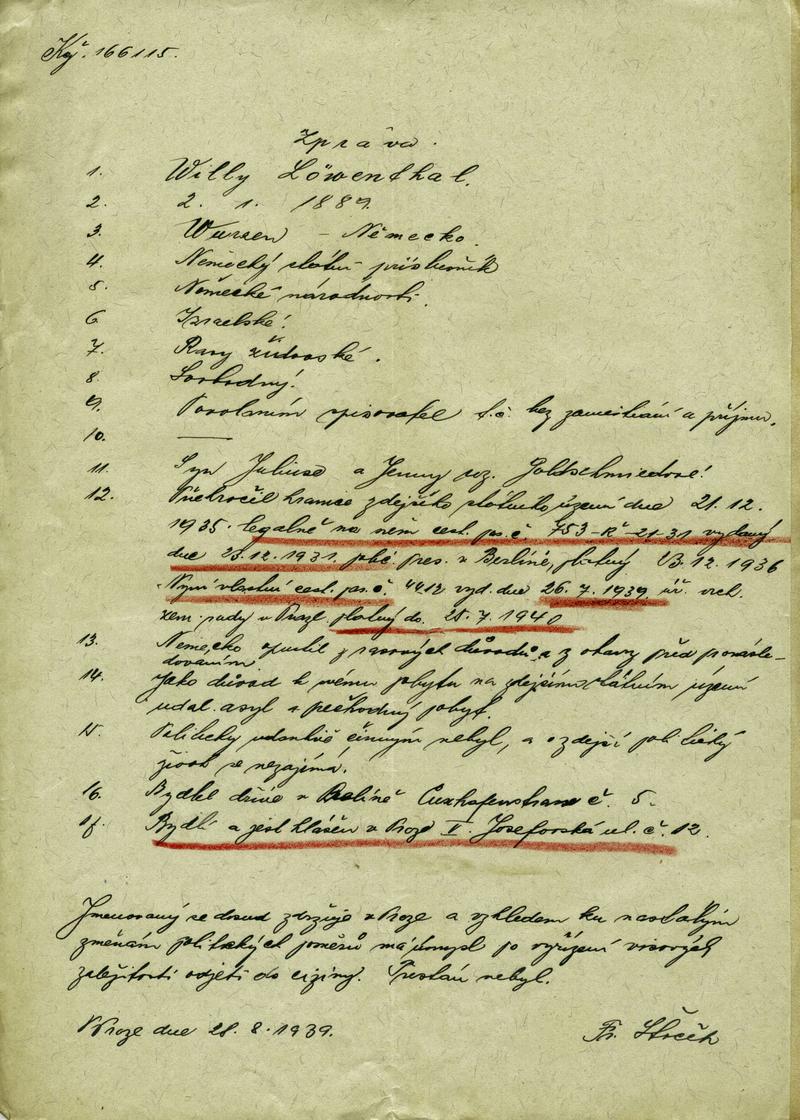 Kř. 166115.
Zpráva.
1. Willy Löwenthal.
2. 2. 1. 1889.
3. Wurzen – Německo.
4. Německý státní příslušník
5. Německé národnosti.
6 Izraelské.
7. Rasy židovské.
8. Svobodný.
9. Povoláním spisovatel t.č. bez zaměstnání a příjmu.
10. —
11. Syn Juliuse a Jenny roz. Goldschmiedové.
12. Překročil hranice zdejšího státního území dne 21. 12.
1935. legálně na něm. cest. ps. č. 753-R-21-31 vydaný
dne 23.12.1931. pres. v Berlíně, platný 1936
Nyní vlastní cest. ps. č. 4412 vyd. dne 26. 7. 1939. vrch.
zem. rady v Praze platný do. 25. 7. 1940
13. Německo opustil z rasových důvodů a z obavy před pronásle-
dováním.
14. Jako důvod k svému pobytu na zdejším státním území
udal. asyl a přechodný pobyt.
15. Politicky činným nebyl, a o zdejší politický
život se nezajímá.
16. Bydlel dříve v Berlíně Cuxhafenstrasse č. 5.
17. Bydlí a jest hlášen v Praze V. Josefovská ul. č. 12.
Jmenovaný se dosud zdržuje v Praze a vzhledem ku nastalým
změnám politických poměrů má úmysl po vyřízení visových
záležitostí odjeti do ciziny. Trestán nebyl.
V Praze dne 28. 8. 1939.